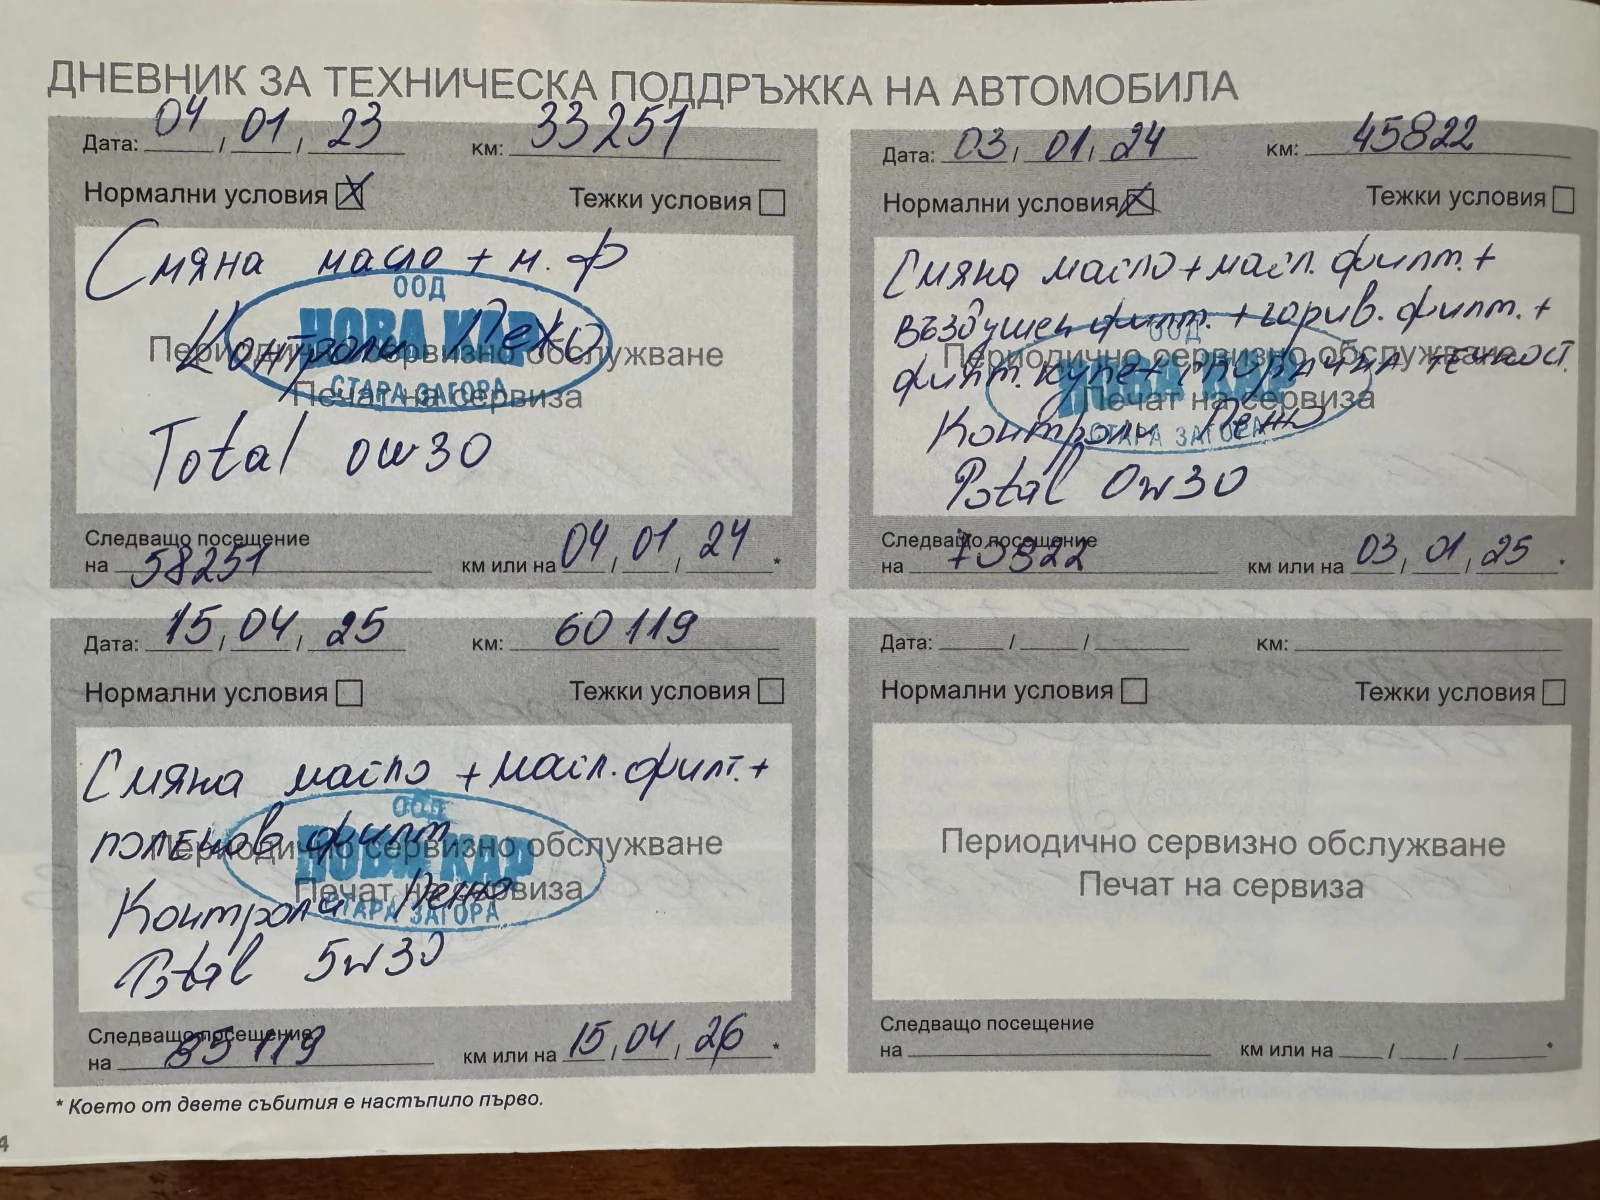 ДНЕВНИК ЗА ТЕХНИЧЕСКА ПОДДРЪЖКА НА АВТОМОБИЛА
Дата: 04 / 01 / 23 км: 33251
Нормални условия Тежки условия
Смяна масло + м. ф
ООД
НОВА КАР
Контроли Пежо
Периодично сервизно обслужване
СТАРА ЗАГОРА
Печат на сервиза
Total 0w30
Следващо посещение
на 58251 км или на 04 / 01 / 24 *
Дата: 03 / 01 / 24 км: 45822
Нормални условия Тежки условия
Смяна масло + масл. филт. +
въздушен филт. + горив. филт. +
ООД
Периодично сервизно обслужване
филт. купе + спирачна течност.
НОВА КАР
Печат на сервиза
Контроли Пежо
СТАРА ЗАГОРА
Total 0w30
Следващо посещение
на 70822 км или на 03 / 01 / 25 *
Дата: 15 / 04 / 25 км: 60119
Нормални условия Тежки условия
Смяна масло + масл. филт. +
ООД
поленов филт
Периодично сервизно обслужване
НОВА КАР
Печат на сервиза
Контроли Пежо
СТАРА ЗАГОРА
Total 5w30
Следващо посещение
на 85119 км или на 15 / 04 / 26 *
Дата: / / км:
Нормални условия Тежки условия
Периодично сервизно обслужване
Печат на сервиза
Следващо посещение
на км или на / / *
* Което от двете събития е настъпило първо.
4